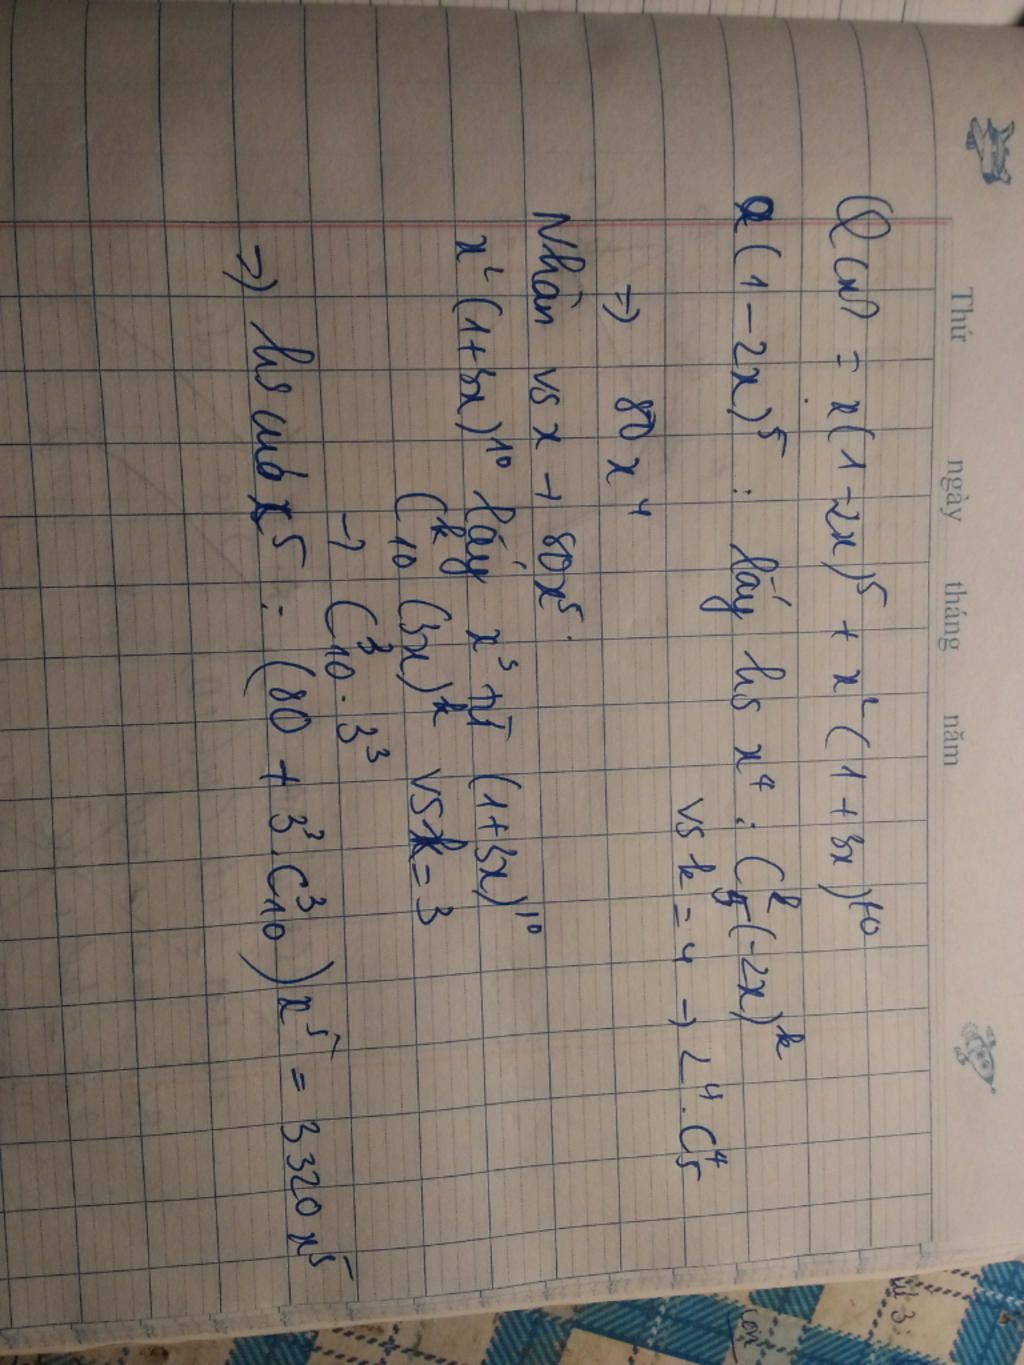 Thứ ngày tháng năm
Q(x) = x(1-2x)⁵ + x²(1+3x)¹⁰
x(1-2x)⁵ : lấy hs x⁴ : C₅ᵏ(-2x)ᵏ
vs k = 4 → 2⁴.C₅⁴
=> 80x⁴
Nhân vs x → 80x⁵.
x²(1+3x)¹⁰ lấy x³ từ (1+3x)¹⁰
C₁₀ᵏ (3x)ᵏ vs k = 3
→ C₁₀³ . 3³
=> hs của x⁵ : (80 + 3³.C₁₀³)x⁵ = 3320x⁵